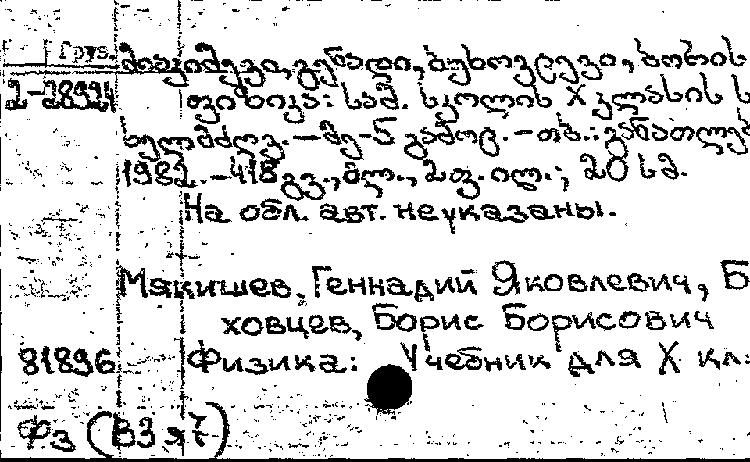 Груз. მიაკიშევი, გენადი, ბუხოვცევი, ბორის
2-28924 ფიზიკა: საშ. სკოლის X კლასის ს
ხელმძღვ. — მე-5 გამოც. — თბ.: განათლებ
1982. — 418 გვ., მლ., 2 ფ. ილ.; 20 სმ.
На обл. авт. не указаны.
Мякишев, Геннадий Яковлевич, Б
ховцев, Борис Борисович
81896 Физика: Учебник для X кл.
Фз (В3 я7)